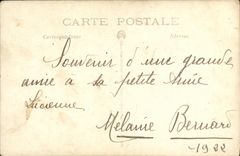 CARTE POSTALE
Correspondance Adresse
Souvenir d'une grande
amie a sa petite amie
Lucienne
Mélanie Bernard
1922